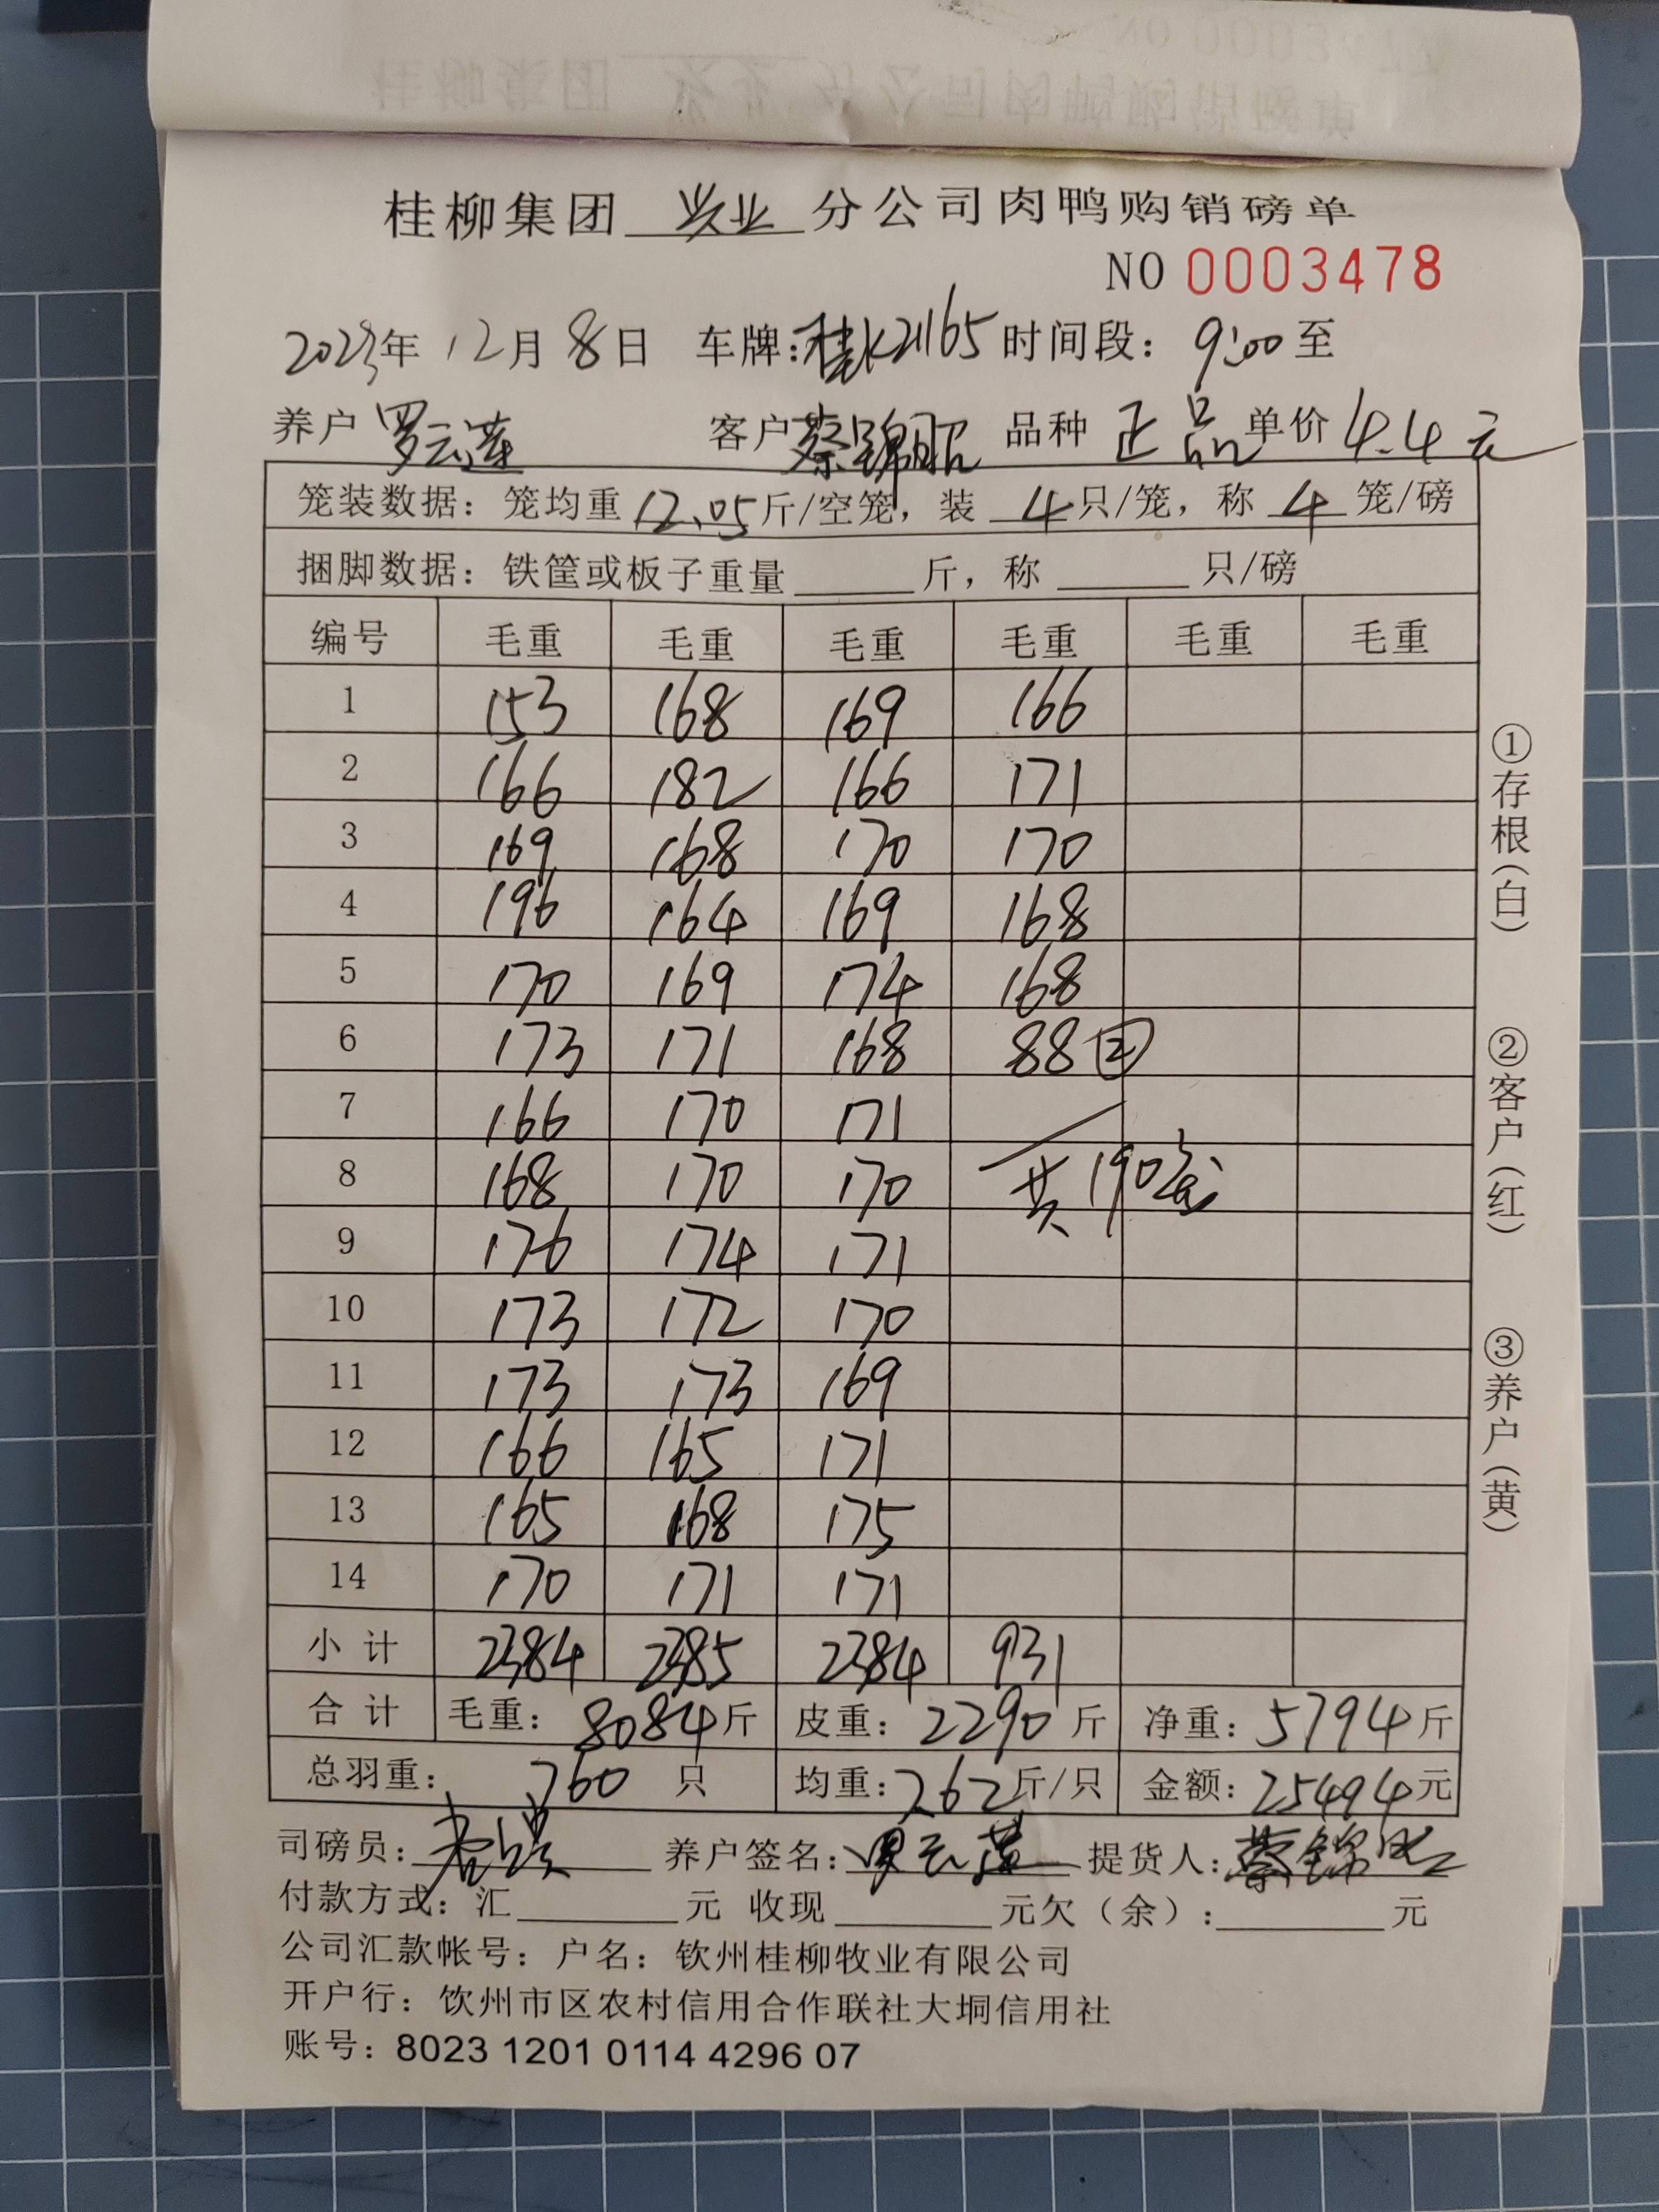 桂柳集团 兴业 分公司肉鸭购销磅单
NO 0003478
2023年 12月 8日 车牌:桂K21165 时间段: 9:00 至
养户 罗云莲 客户 蔡锦昭 品种 正品 单价 4.4元
笼装数据: 笼均重 12.05 斤/空笼, 装 4 只/笼, 称 4 笼/磅
捆脚数据: 铁筐或板子重量 斤, 称 只/磅
编号 毛重 毛重 毛重 毛重 毛重 毛重
1 153 168 169 166
2 166 182 166 171
3 169 168 170 170
4 196 164 169 168
5 170 169 174 168
6 173 171 168 88 ②
7 166 170 171
8 168 170 170 共190笼
9 176 174 171
10 173 172 170
11 173 173 169
12 166 165 171
13 165 168 175
14 170 171 171
小计 2384 2385 2384 931
合计 毛重: 8084 斤 皮重: 2290 斤 净重: 5794 斤
总羽重: 760 只 均重: 7.62 斤/只 金额: 25494 元
司磅员: 养户签名: 罗云莲 提货人: 蔡锦昭
付款方式: 汇 元 收现 元欠(余): 元
公司汇款帐号: 户名: 钦州桂柳牧业有限公司
开户行: 饮州市区农村信用合作联社大垌信用社
账号: 8023 1201 0114 4296 07
①存根(白)
②客户(红)
③养户(黄)